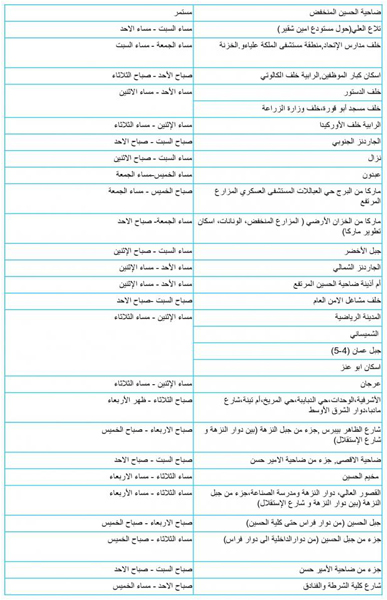 ضاحية الحسين المنخفض مستمر
تلاع العلي(حول مستودع امين شقير) مساء السبت - مساء الاحد
خلف مدارس الإتحاد,منطقة مستشفى الملكة علياءو.الخزنة مساء الجمعة - مساء السبت
اسكان كبار الموظفين,الرابية خلف الكالوتي صباح الأحد - صباح الثلاثاء
خلف الدستور مساء الأحد - مساء الاثنين
خلف مسجد أبو قورة,خلف وزارة الزراعة
الرابية خلف الأوركيدا مساء الإثنين - صباح الثلاثاء
الجاردنز الجنوبي صباح السبت - صباح الاحد
نزال مساء السبت - صباح الاثنين
عبدون مساء الخميس-مساء الجمعة
ماركا من البرج حي العبداللات المستشفى العسكري المزارع صباح الخميس - مساء الجمعة
المرتفع
ماركا من الخزان الأرضي ( المزارع المنخفض، الونانات، اسكان مساء الجمعة- صباح الاحد
تطوير ماركا)
جبل الأخضر مساء السبت - صباح الإثنين
الجاردنز الشمالي مساء الأحد - مساء الإثنين
أم أذينة ضاحية الحسين المرتفع مساء الأحد - مساء الإثنين
خلف مشاغل الامن العام صباح السبت -صباح الاحد
المدينة الرياضية مساء الإثنين - مساء الثلاثاء
الشميساني
جبل عمان (4-5)
اسكان ابو عنز
عرجان مساء الإثنين - مساء الثلاثاء
الأشرفية,الوحدات,حي الذبايبة,حي المريخ,أم تينة,شارع صباح الثلاثاء - ظهر الأربعاء
مادبا,دوار الشرق الأوسط
شارع الظاهر بيبرس ,جزء من جبل النزهة (بين دوار النزهة و صباح الاربعاء - صباح الخميس
شارع الإستقلال)
ضاحية الاقصى, جزء من ضاحية الامير حسن صباح السبت - صباح الاحد
مخيم الحسين مساء الثلاثاء - مساء الاربعاء
القصور العالي، دوار النزهة ومدرسة الصناعة،جزء من جبل مساء الثلاثاء - مساء الأربعاء
النزهة (بين دوار النزهة و شارع الإستقلال)
جبل الحسين (من دوار فراس حتى كلية الحسين) صباح الاربعاء - صباح الخميس
جزء من جبل الحسين (من دوارالداخلية الى دوار فراس) مساء الثلاثاء - صباح الخميس
جزء من ضاحية الأمير حسن صباح السبت - صباح الاحد
شارع كلية الشرطة والفنادق صباح الاحد - مساء الخميس